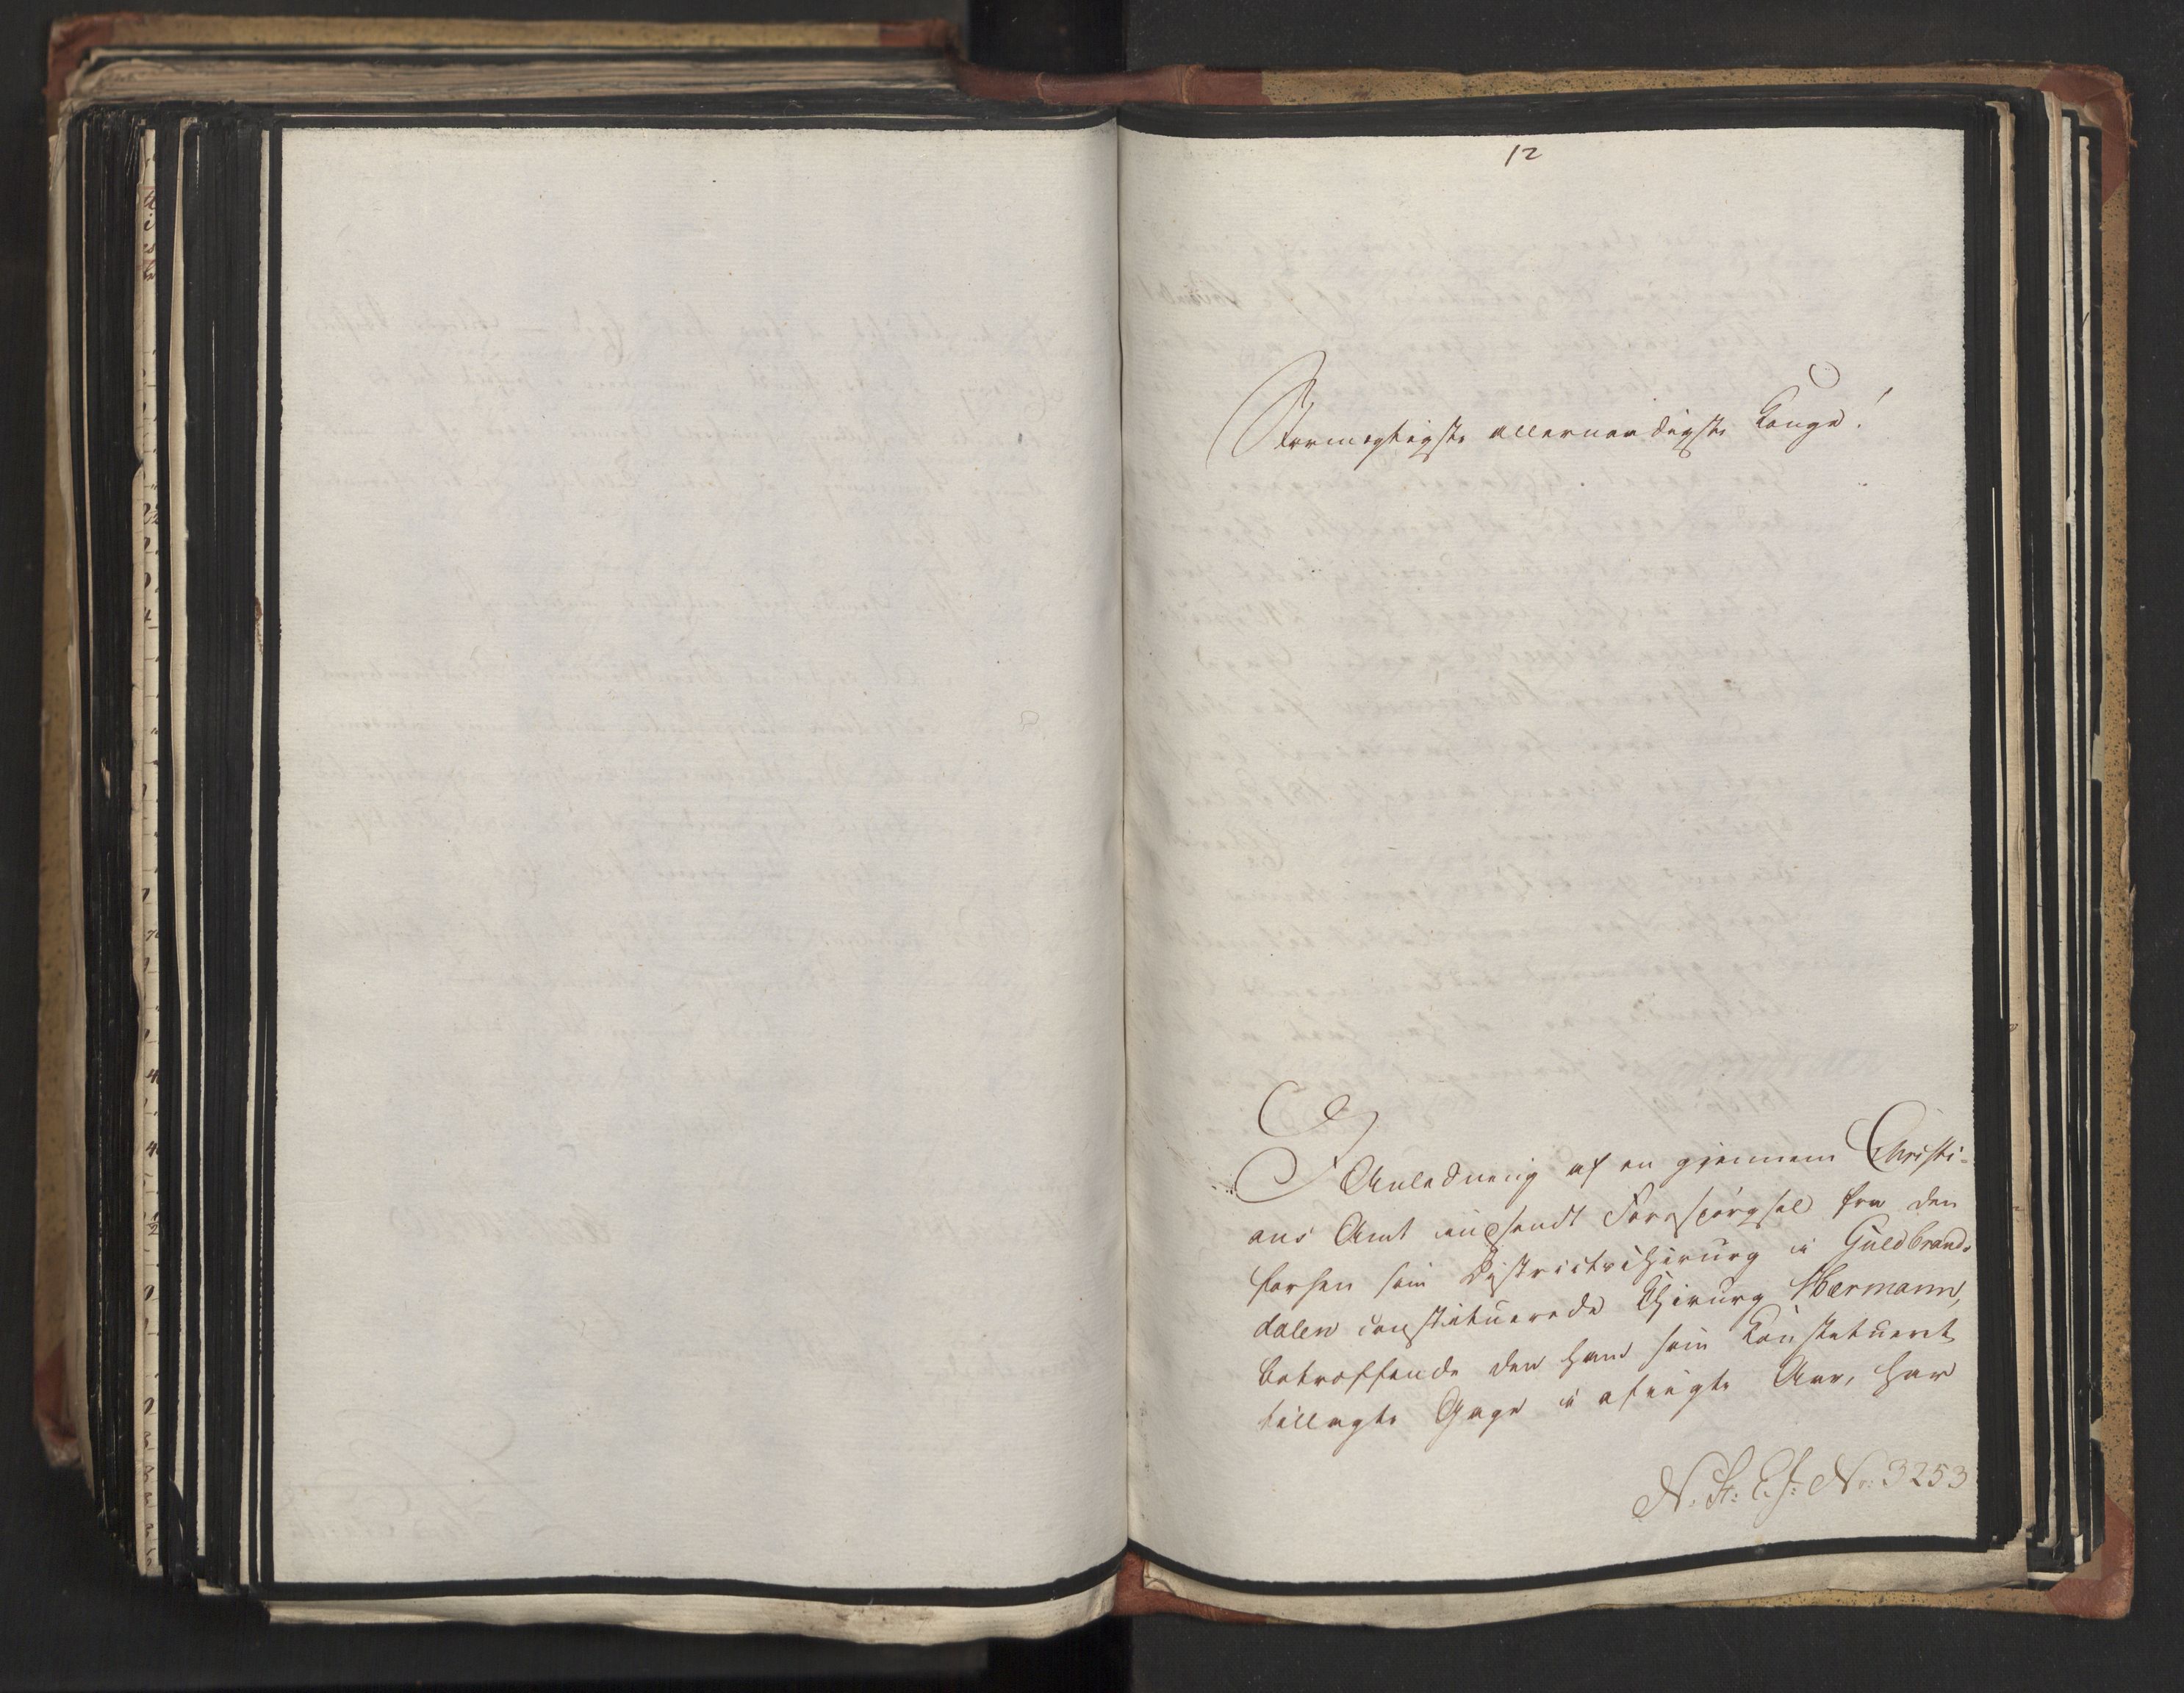 12
Stormægtigste allernaadigste Konge!
I Anledning af en gjennem Christi-
ans Amt indsendt Forespørgsel fra den
forhen som Districtschirurg i Guldbrands
dalen constituerede Chirurg Hermann,
betreffende den ham som Konstitueret
tillagte Gage i afvigte Aar, har
N. St: C. J: No: 3253